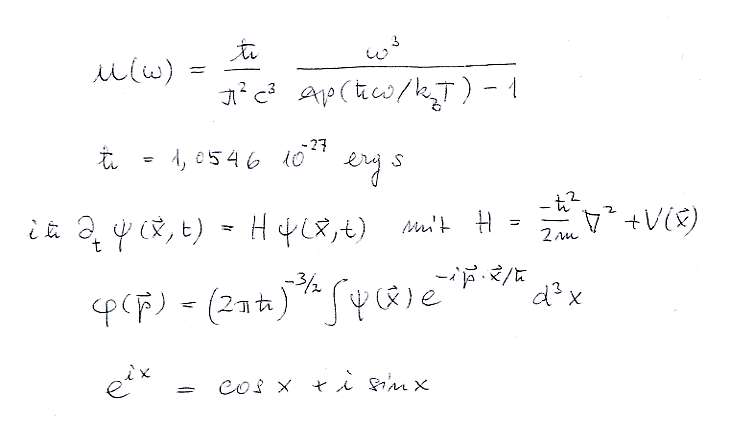 u(ω) = ħ/(π² c³) ω³/(exp(ħω/k_B T) − 1)
ħ = 1,0546 10⁻²⁷ erg s
iħ ∂_t ψ(x⃗, t) = H ψ(x⃗, t) mit H = −ħ²/2m ∇² + V(x⃗)
φ(p⃗) = (2πħ)^(−3/2) ∫ ψ(x⃗) e^(−i p⃗ · x⃗/ħ) d³x
e^(ix) = cos x + i sin x